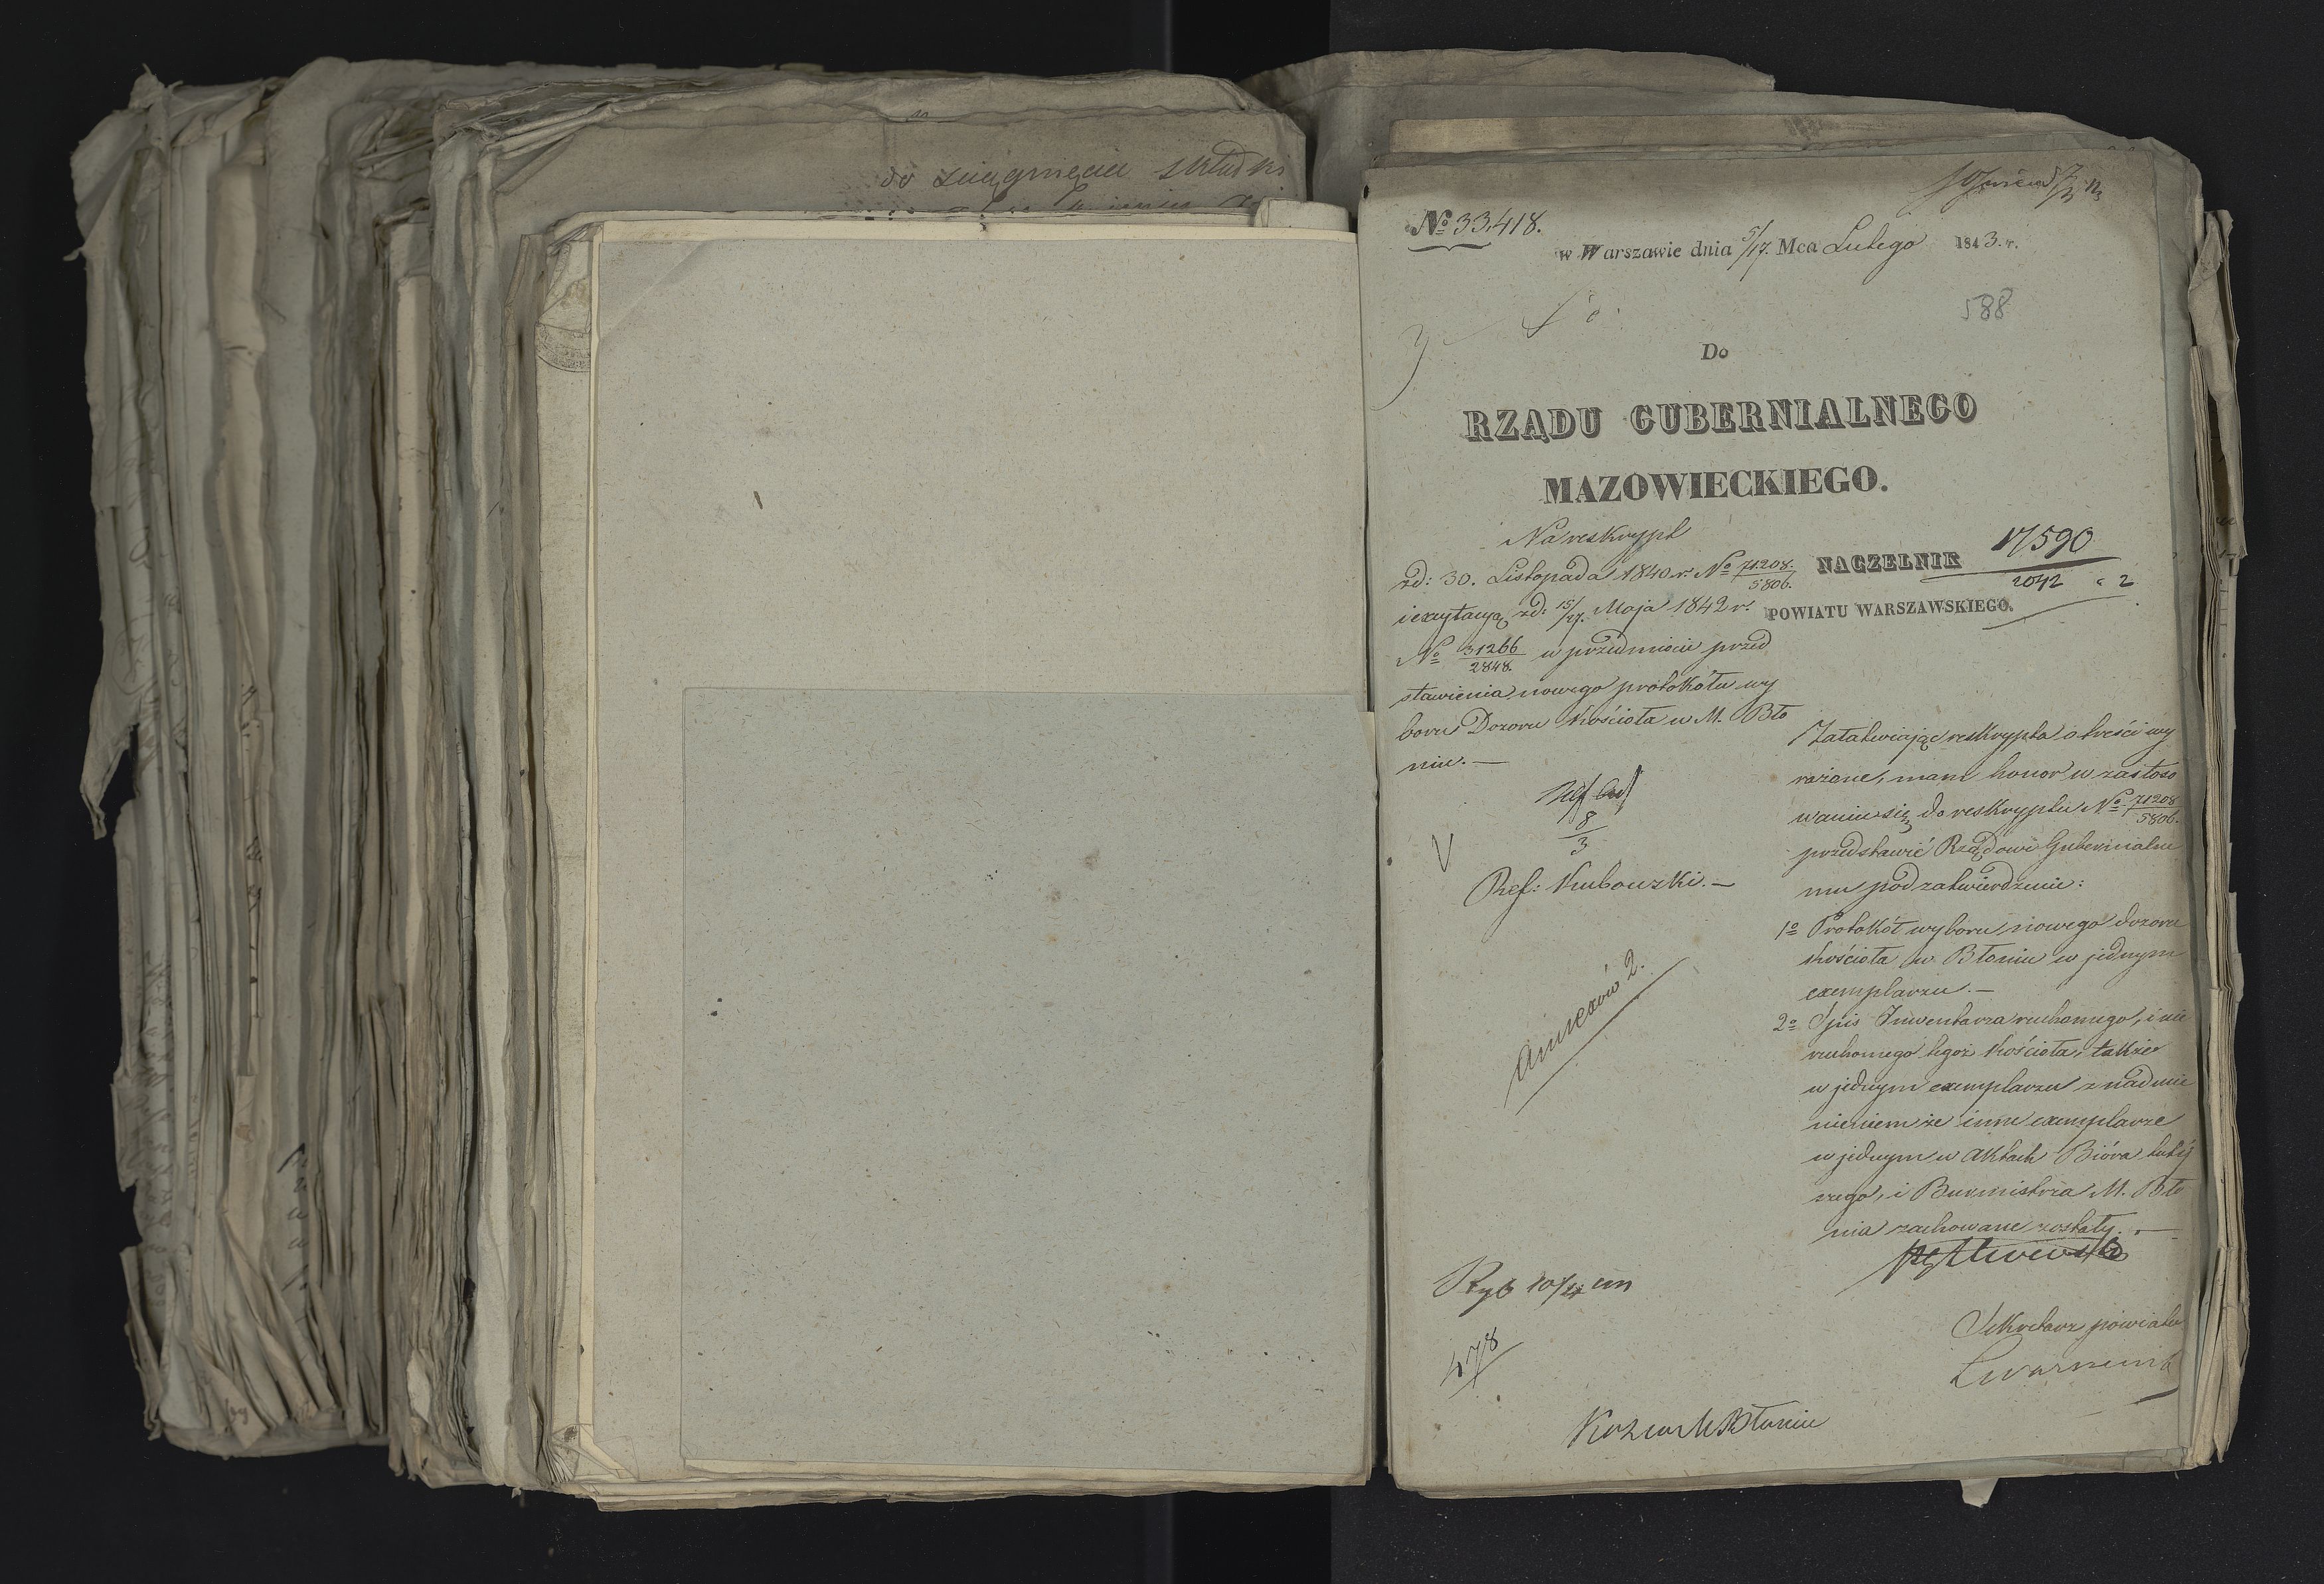 do ściągnięcia składki
№ 33,418.
w Warszawie dnia 5/17. Mca Lutego 1843. r.
588
Do
RZĄDU GUBERNIALNEGO
MAZOWIECKIEGO.
Na reskrypt
zd: 30. Listopada 1840 r. № 71208./5806.
i excytacyą zd: 15/27. Maja 1842 r.
№ 31266/2848. w przedmiocie przed
stawienia nowego protokółu wy
boru Dozoru Kościoła w M. Bło
niu. —
8/3
Ref: Kubowski. —
Annexów 2.
478
17590
NACZELNIK
2042
2
POWIATU WARSZAWSKIEGO.
Załatwiając reskrypta o treści wy
rażone, mam honor w zastoso
waniu się do reskryptu № 71208/5806.
przedstawić Rządowi Gubernialne
mu pod zatwierdzenie:
1o Protokół wyboru nowego dozoru
Kościoła w Błoniu w jednym
exemplarzu. —
2o Spis Inwentarza ruchomego, i nie
ruchomego tegoż Kościoła, także
w jednym exemplarzu z nadmie
nieniem że inne exemplarze
w jednym w Aktach Bióra tutéj
szego, i Burmistrza M. Bło
nia zachowane zostały. —
Sekretarz powiatu